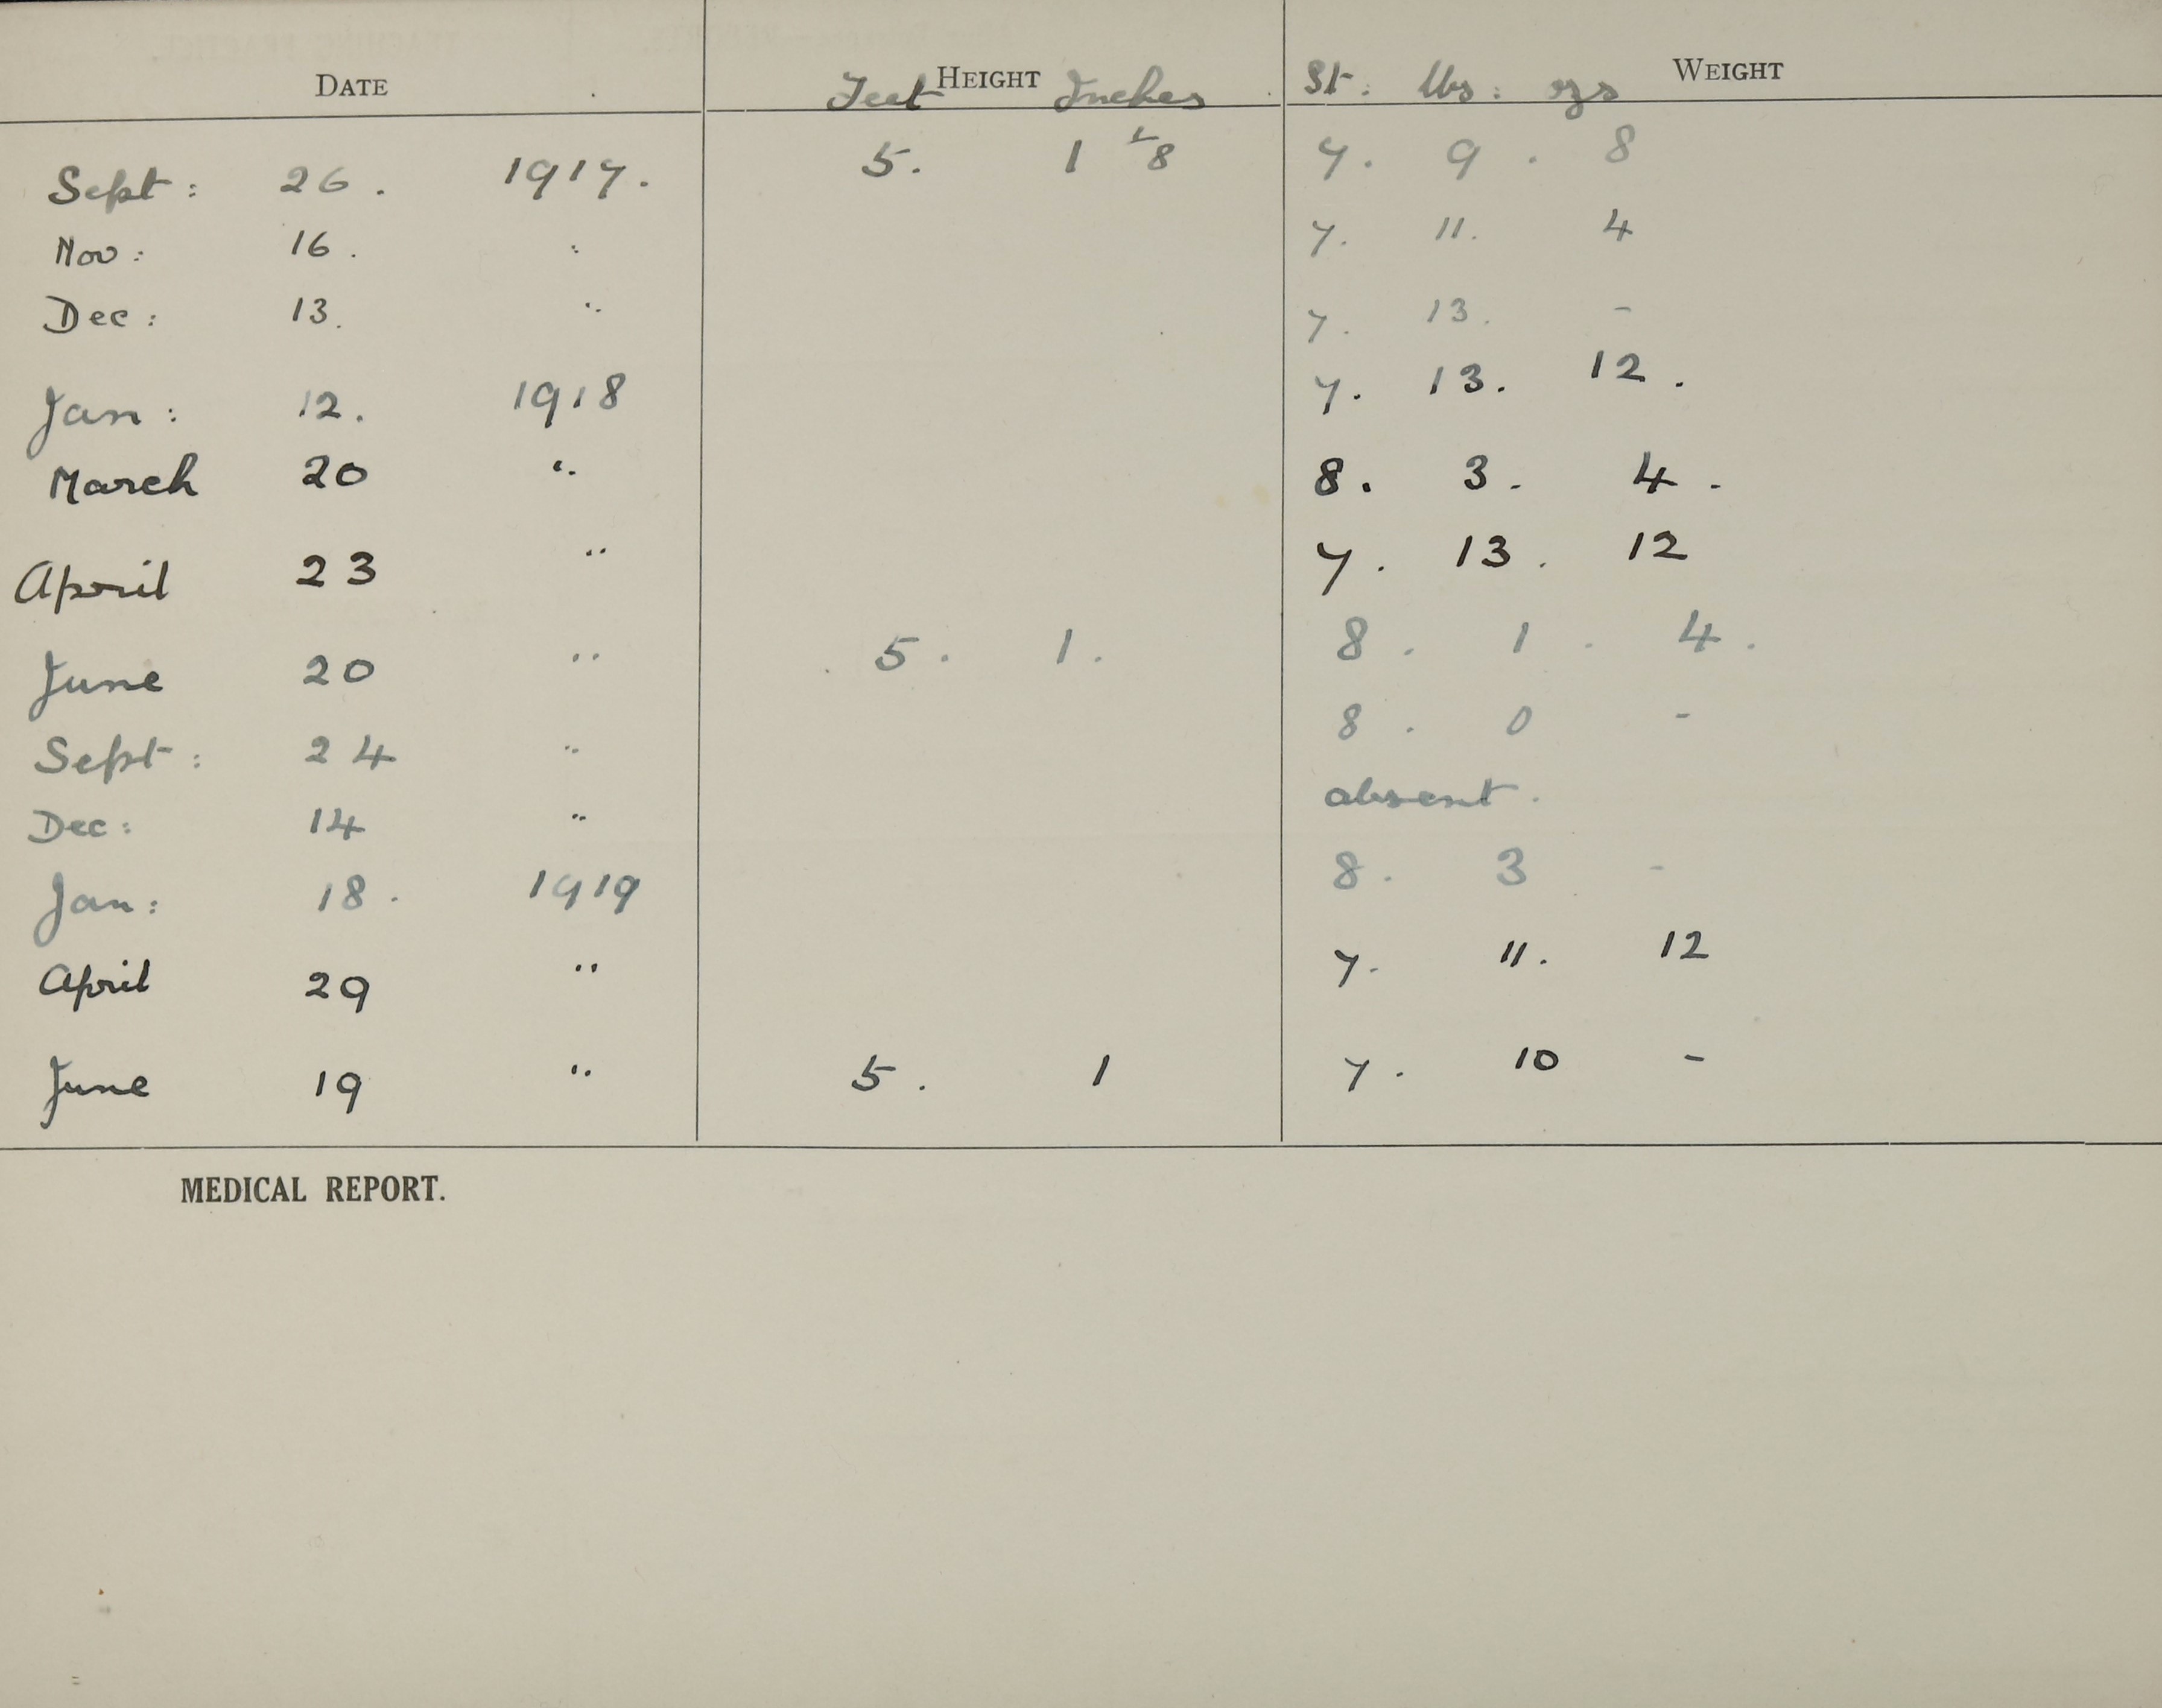 DATE HEIGHT WEIGHT
Feet Inches St: lbs: ozs
Sept: 26. 1917. 5. 1 1/8 7. 9. 8
Nov: 16. " 7. 11. 4
Dec: 13. " 7. 13. -
Jan: 12. 1918 7. 13. 12.
March 20 " 8. 3. 4.
April 23 " 7. 13. 12
June 20 " 5. 1. 8. 1. 4.
Sept: 24 " 8. 0 -
Dec: 14 " absent.
Jan: 18. 1919 8. 3 -
April 29 " 7. 11. 12
June 19 " 5. 1 7. 10 -
MEDICAL REPORT.